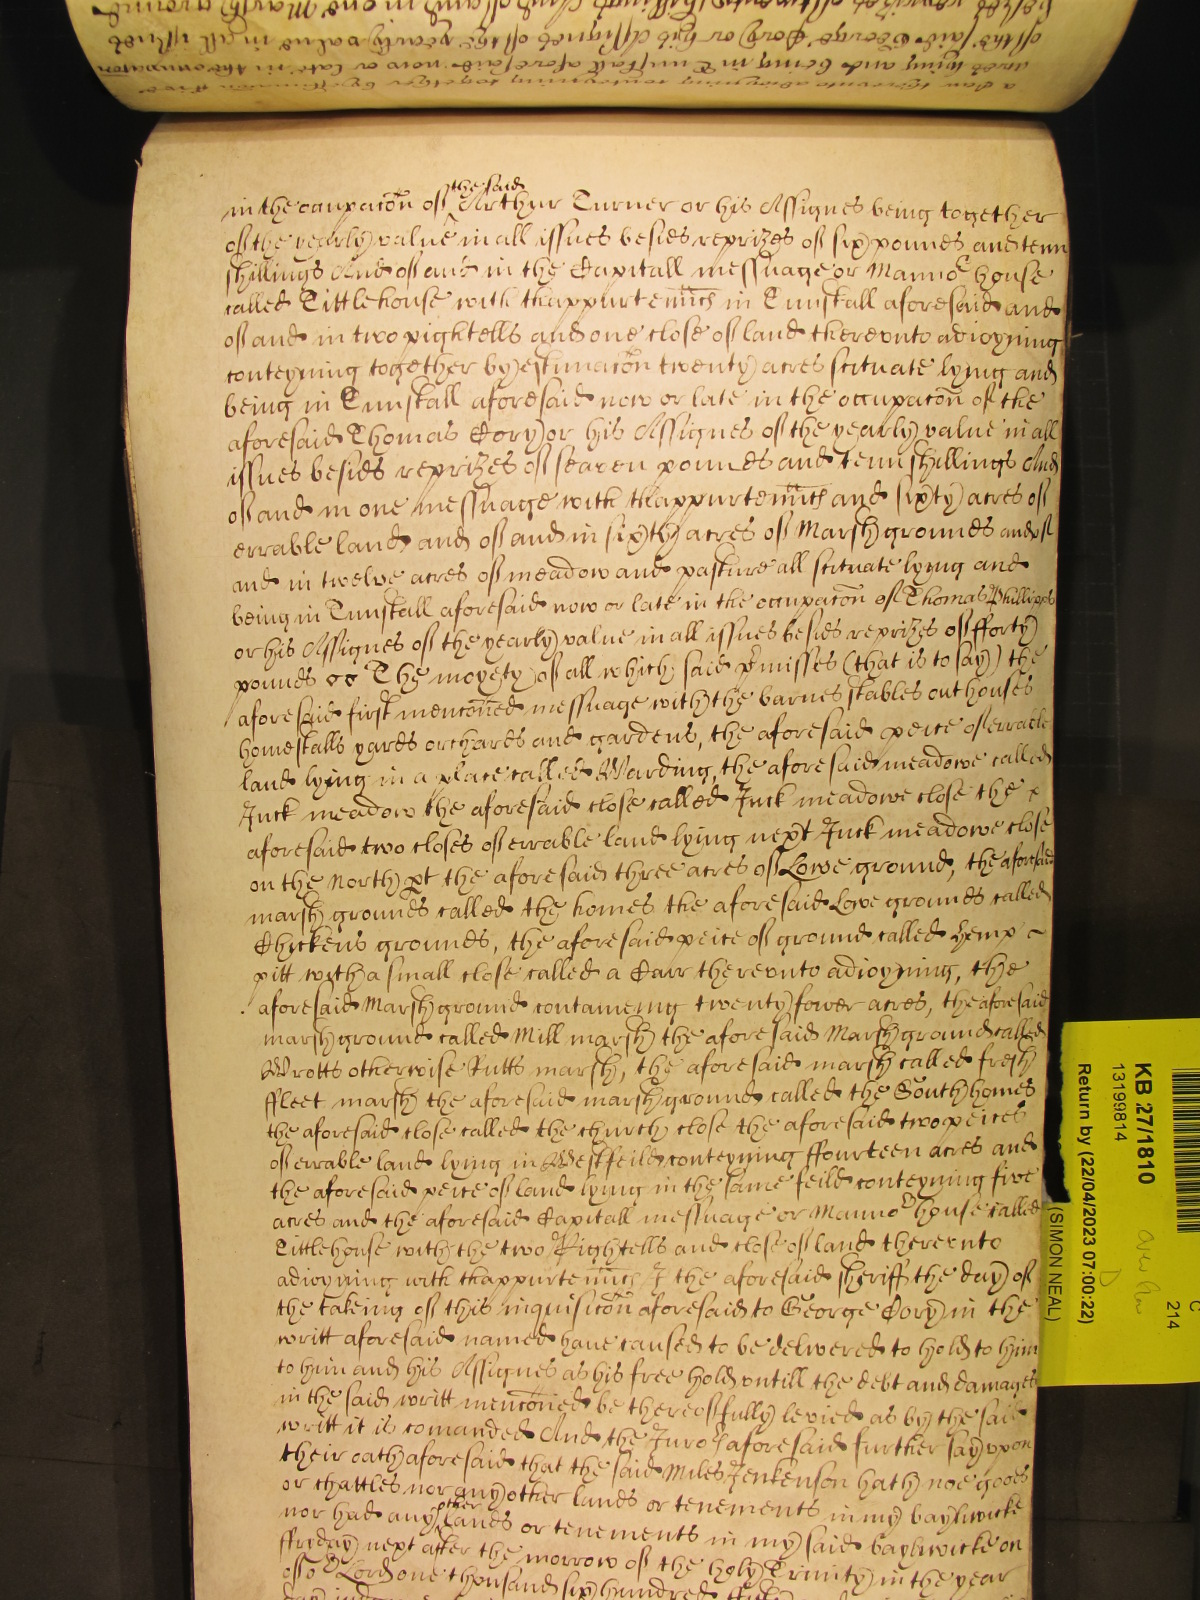 in the occupac̃on of ^the said Arthur Turner or his Assignes being together
of the yearly value in all issues besids reprizes of six pounds and tenn
shillings And of and in the Capitall messuage or Manno^r house
called Tittlehouse with thappurten̅n̅c̅s in Tunstall aforesaid and
of and in two pightells and one close of land therevnto adioyning
conteyning together by estimac̃on twenty acres scituate lying and
being in Tunstall aforesaid now or late in the occupac̃on of the
aforesaid Thomas Cory or his Assignes of the yearly value in all
issues besids reprizes of seaven pounds and tenn shillings And
of and in one messuage with thappurten̅n̅c̅s and sixty acres of
errable land and of and in sixty acres of Marsh grounds and of
and in twelve acres of meadow and pasture all scituate lying and
being in Tunstall aforesaid now or late in the occupac̃on of Thomas Phillipps
or his Assignes of the yearly value in all issues besids reprizes of fforty
pounds The moyety of all which said p̃misses (that is to say) the
aforesaid first menc̃oned messuage with the barnes stables outhouses
homestalls yards orchards and gardens, the aforesaid peice of errable
land lying in a place called Warding, the aforesaid meadowe called
Juck meadow the aforesaid close called Juck meadowe close the
aforesaid two closes of errable land lying next Juck meadowe close
on the North p̱t the aforesaid three acres of Lowe ground, the aforesaid
marsh grounds called the homes the aforesaid Lowe grounds called
Chickens grounds, the aforesaid peice of ground called Hemp
pitt with a small close called a Carr therevnto adioyning, the
aforesaid Marsh ground containeing twenty fower acres, the aforesaid
marsh ground called Mill marsh the aforesaid Marsh ground called
Wrotts otherwise Rutts marsh, the aforesaid marsh called fresh
ffleet marsh the aforesaid marsh ground called the South homes
the aforesaid close called the church close the aforesaid two peices
of errable land lying in Westfeild conteyning ffourteen acres and
the aforesaid peice of land lying in the same feild conteyning five
acres and the aforesaid Capitall messuage or Manno^r house called
Tittlehouse with the two Pightells and close of land therevnto
adioyning with thappurten̅n̅c̅s I the aforesaid sheriff the day of
the takeing of this inquisic̃on aforesaid to George Cory in the
writt aforesaid named have caused to be delivered to hold to him
to him and his Assignes as his free hold vntill the debt and damages
in the said writt menc̃oned be thereof fully levied as by the said
writt it is comanded And the Juro^rs aforesaid further say vpon
their oath aforesaid that the said Miles Jenkenson hath noe goods
or chattles nor any other lands or tenements in my baylywicke
nor had any ^other lands or tenements in my said baylywicke on
ffryday next after the morrow of the holy Trinity in the year
of o^r Lord one thousand six hundred
KB 27/1810
13199814
Return by (22/04/2023 07:00:22)
(SIMON NEAL)
214